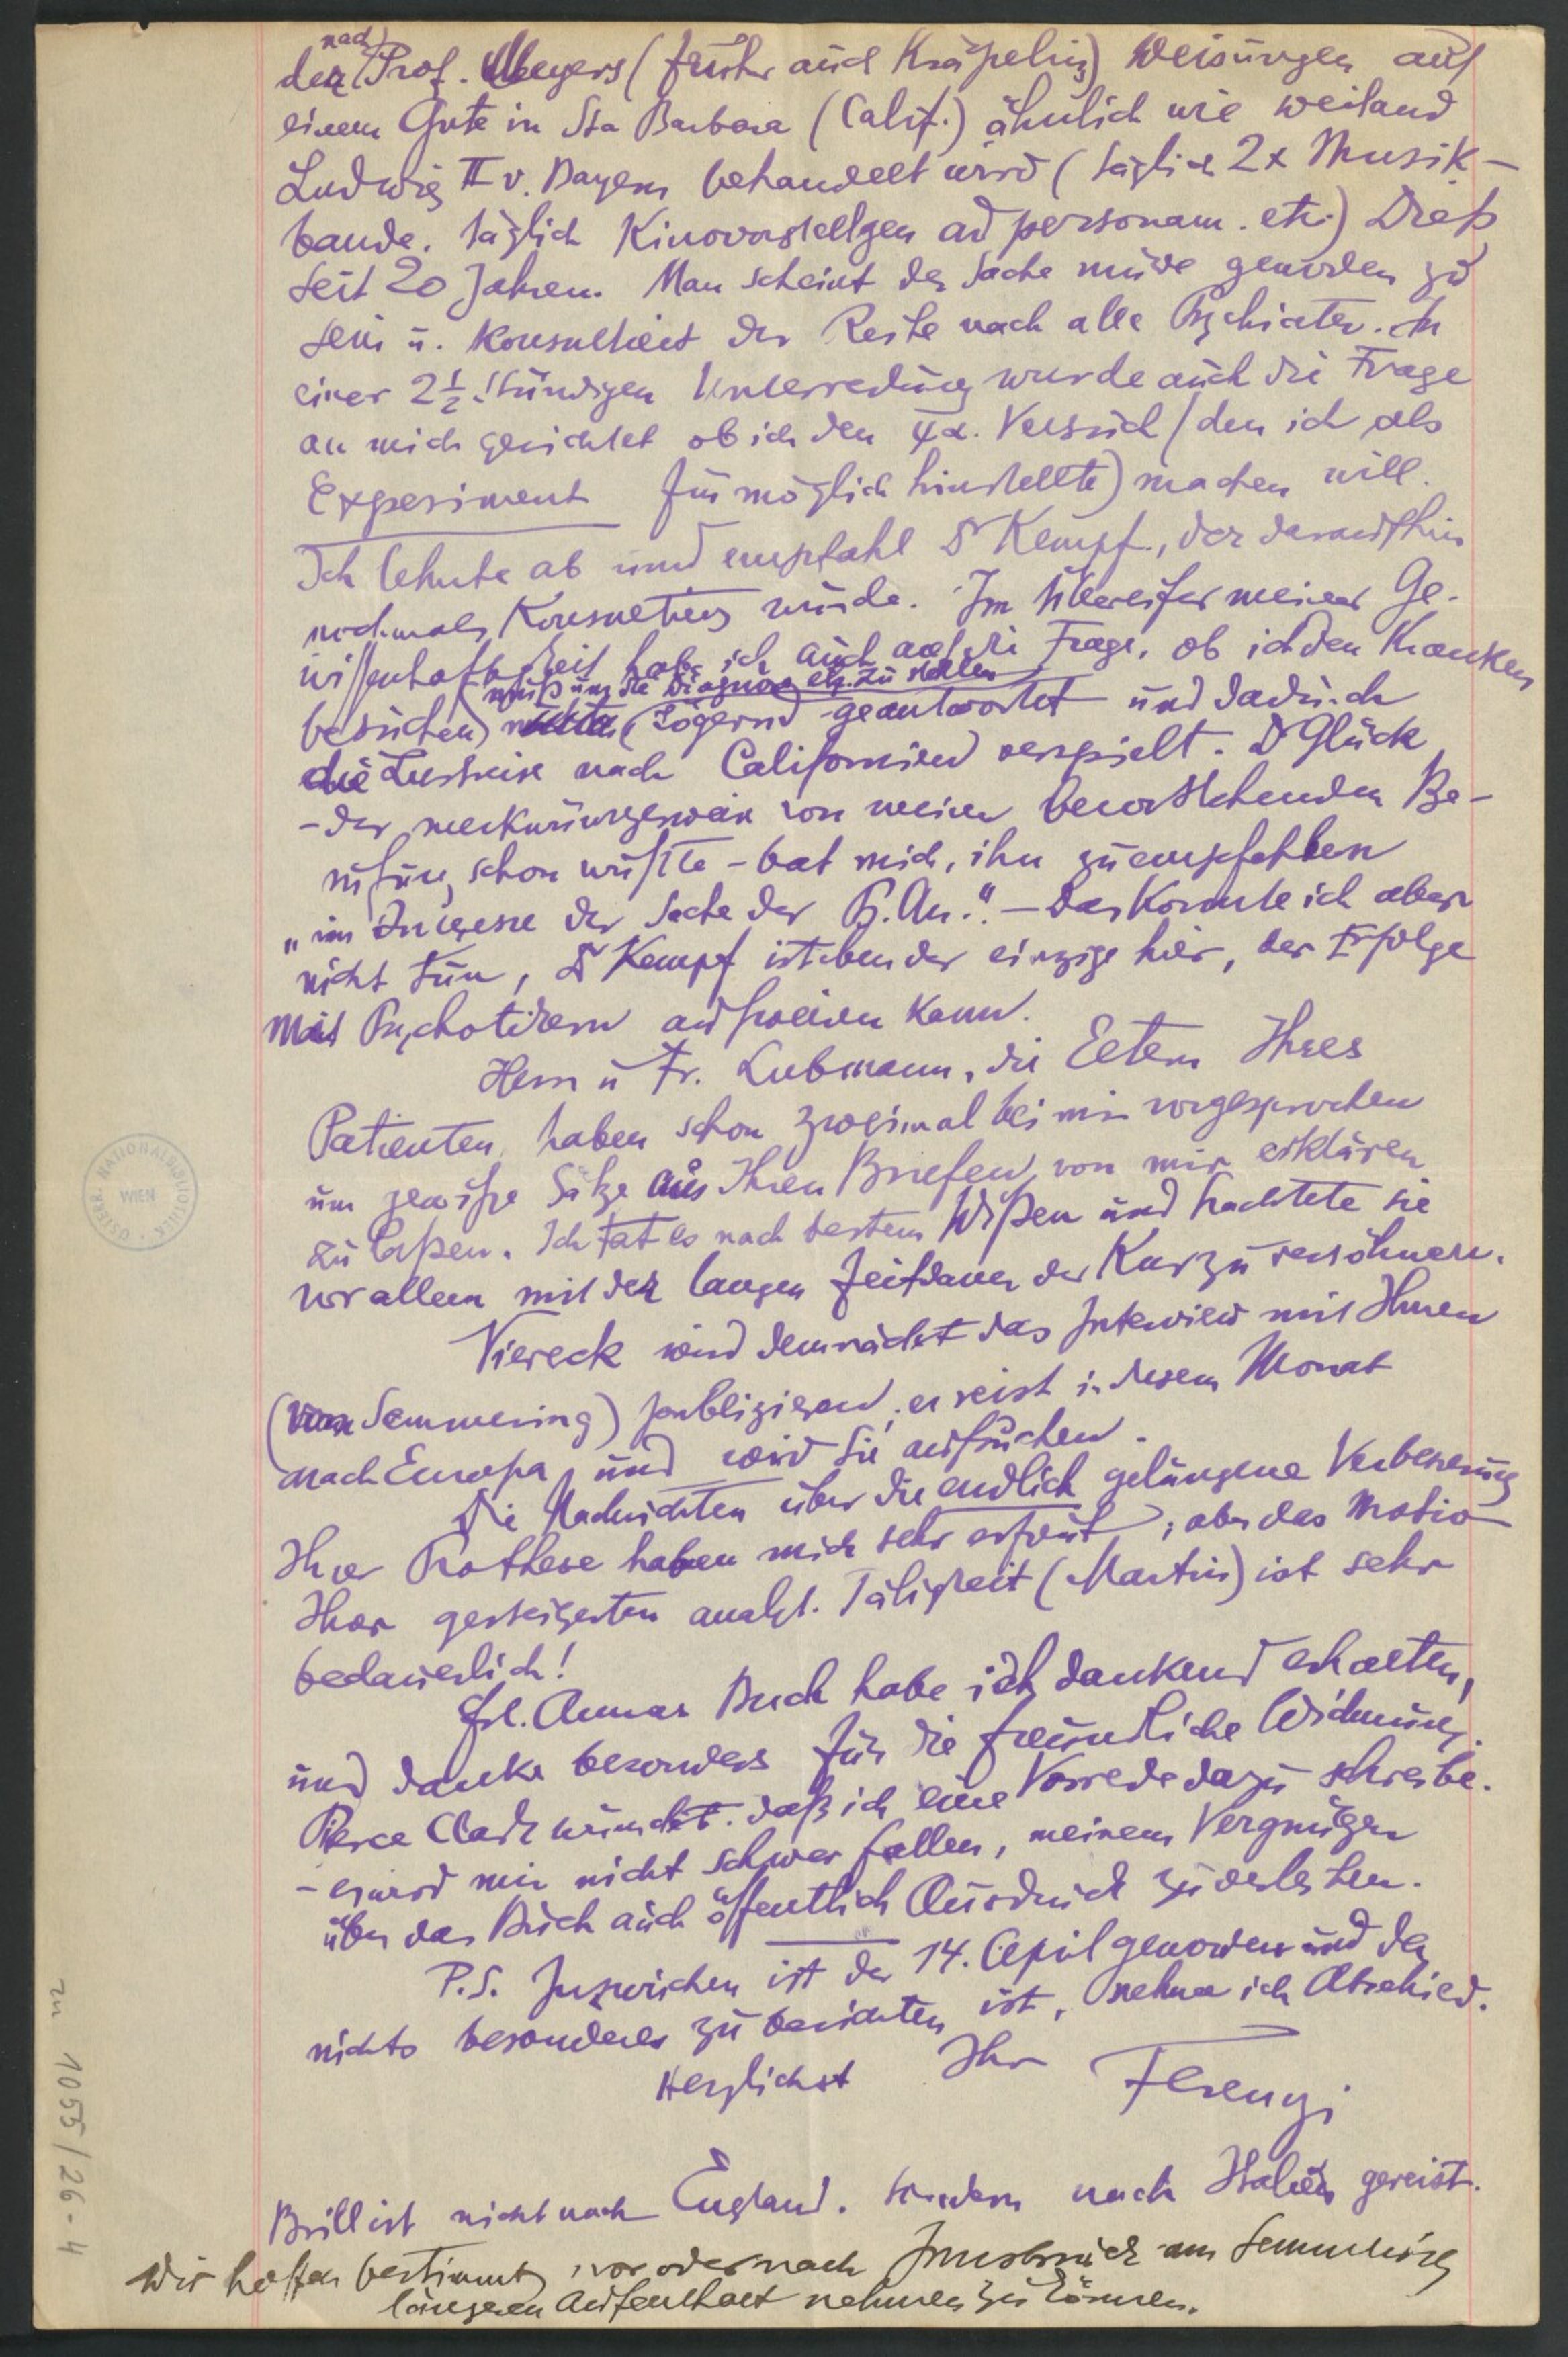 der nach Prof. Meyers (früher auch Kräpelins) Weisungen auf
einem Gute in Sta Barbara (Calif.) ähnlich wie weiland
Ludwig II v. Bayern behandelt wird (täglich 2x Musik-
bande, täglich Kinovorstellgen ad personam. etc.) Dieß
seit 20 Jahren. Man scheint der Sache müde geworden zu
sein u. konsultiert der Reihe nach alle Psychiater. In
einer 2½ stündigen Unterredung wurde auch die Frage
an mich gerichtet ob ich den ψα. Versuch (den ich als
Experiment für möglich hinstellte) machen will.
Ich lehnte ab und empfahl Dr Kempf, der daraufhin
nochmals konsultiert wurde. Im Übereifer meiner Ge-
wissenhaftigkeit habe ich auch auf die Frage, ob ich den Kranken
muß um die Diagnose etc. zu stellen
besuchen (zögernd geantwortet und dadurch
die Lustreise nach Californien verspielt. Dr Glück
- der merkwürdigerweise von meiner bevorstehenden Be-
rufung schon wußte - bat mich, ihn zu empfehlen
„im Interesse der Sache der Ps.An." — Das konnte ich aber
nicht tun, Dr Kempf ist eben der einzige hier, der Erfolge
mit Psychotikern aufweisen kann.
Herr u Fr. Lubmann, die Eltern Ihres
Patienten, haben schon zweimal bei mir vorgesprochen
um gewiße Sätze aus Ihren Briefen von mir erklären
zu laßen. Ich tat es nach bestem Wißen und trachtete sie
vor allem mit der langen Zeitdauer der Kur zu versöhnen.
Viereck wird demnächst das Interview mit Ihnen
(vom Semmering) publizieren; er reist in diesem Monat
nach Europa und wird Sie aufsuchen.
Die Nachrichten über die endlich gelungene Verbesserung
Ihrer Prothese haben mich sehr erfreut; aber das Motiv
Ihrer gesteigerten analyt. Tätigkeit (Martin) ist sehr
bedauerlich!
Frl. Annas Buch habe ich dankend erhalten,
und danke besonders für die freundliche Widmung.
Pierce Clark wünscht, daß ich eine Vorrede dazu schreibe.
- es wird mir nicht schwer fallen, meinem Vergnügen
über das Buch auch öffentlich Ausdruck zu verleihen.
P.S. Inzwischen ist der 14. April geworden und da
nichts besonderes zu berichten ist, nehme ich Abschied.
Herzlichst Ihr Ferenczi
Brill ist nicht nach England, sondern nach Italien gereist.
Wir hoffen bestimmt, vor oder nach Innsbruck am Semmering
längeren Aufenthalt nehmen zu können.
ÖSTERR. NATIONALBIBLIOTHEK
WIEN
zu 1055/26-4